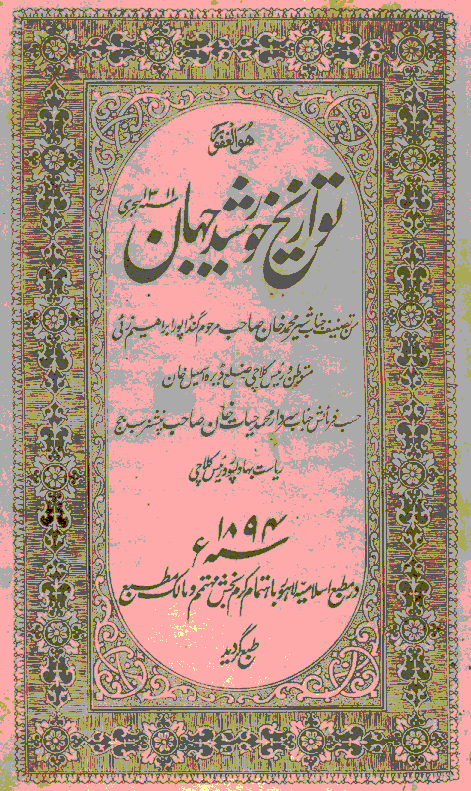 هو الغفور
تواریخ خورشید جہان
سنہ ۱۳۱۱ ہجری
من تصنیف خان شیر محمد خان صاحب مرحوم گنڈاپور ابراہیم زئی
متوطن و رئیس کلاچی ضلع ڈیرہ اسمعیل خان
حسب فرمائش جناب سردار محمد حیات خان صاحب پنشنر سب جج
ریاست بہاولپور و رئیس کلاچی
سنہ ۱۸۹۴ ء
در مطبع اسلامیہ لاہور باہتمام کرم بخش مہتمم و مالک مطبع
طبع گردید